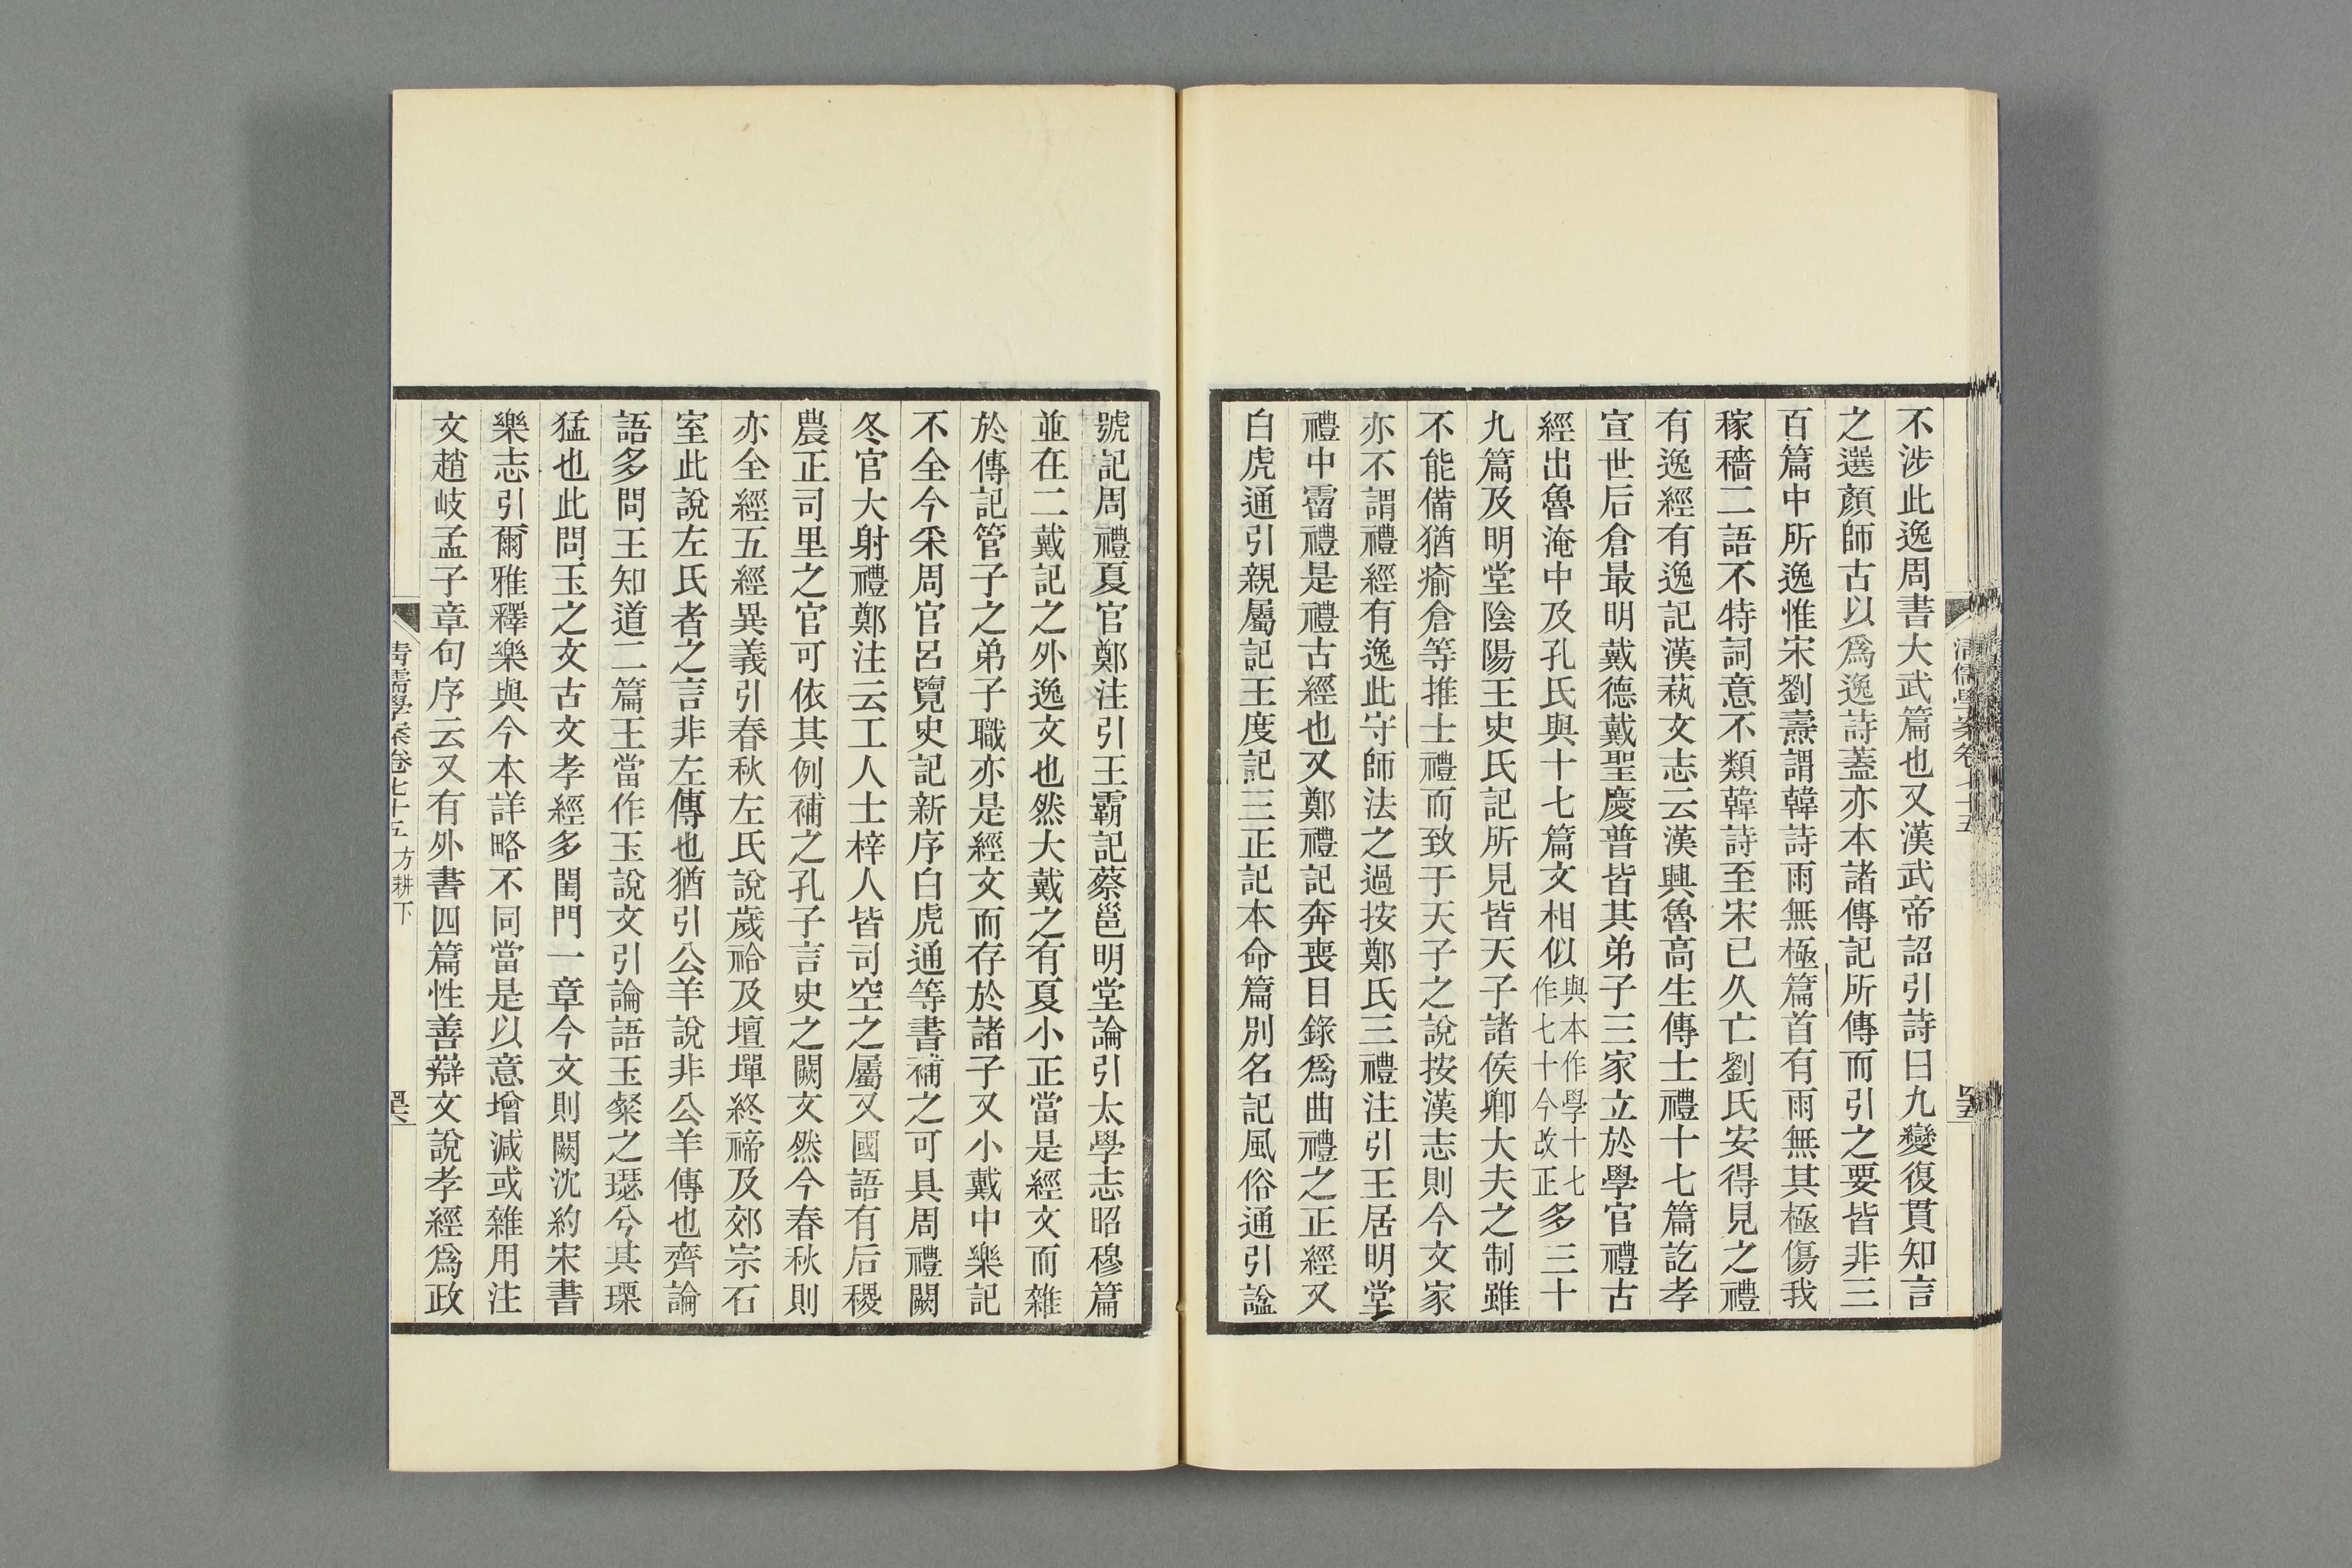 不涉此逸周書大武篇也又漢武帝詔引詩曰九變復貫知言
之選顏師古以爲逸詩蓋亦本諸傳記所傳而引之要皆非三
百篇中所逸惟宋劉燾謂韓詩雨無極篇首有雨無其極傷我
稼穡二語不特詞意不類韓詩至宋已久亡劉氏安得見之禮
有逸經有逸記漢蓺文志云漢興魯高生傳士禮十七篇訖孝
宣世后倉最明戴德戴聖慶普皆其弟子三家立於學官禮古
經出魯淹中及孔氏與十七篇文相似與本作學十七作七十今改正多三十
九篇及明堂陰陽王史氏記所見皆天子諸侯卿大夫之制雖
不能備猶瘉倉等推士禮而致于天子之說按漢志則今文家
亦不謂禮經有逸此守師法之過按鄭氏三禮注引王居明堂
禮中霤禮是禮古經也又鄭禮記奔喪目錄爲曲禮之正經又
白虎通引親屬記王度記三正記本命篇別名記風俗通引諡
清儒學案卷七十五
號記周禮夏官鄭注引王霸記蔡邕明堂論引太學志昭穆篇
並在二戴記之外逸文也然大戴之有夏小正當是經文而雜
於傳記管子之弟子職亦是經文而存於諸子又小戴中樂記
不全今采周官呂覽史記新序白虎通等書補之可具周禮闕
冬官大射禮鄭注云工人士梓人皆司空之屬又國語有后稷
農正司里之官可依其例補之孔子言史之闕文然今春秋則
亦全經五經異義引春秋左氏說歲祫及壇墠終禘及郊宗石
室此說左氏者之言非左傳也猶引公羊說非公羊傳也齊論
語多問王知道二篇王當作玉說文引論語玉粲之瑟兮其瑮
猛也此問玉之文古文孝經多閨門一章今文則闕沈約宋書
樂志引爾雅釋樂與今本詳略不同當是以意增減或雜用注
文趙岐孟子章句序云又有外書四篇性善辯文說孝經爲政
清儒學案卷七十五 方耕下